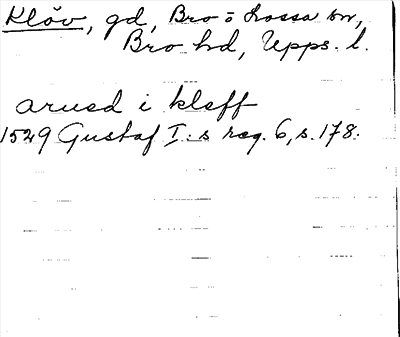 Klöv, gd, Bro o Lossa snr,
Bro hd, Upps. l.
arued i kleff
1529 Gustaf I:s reg. 6, s. 178.